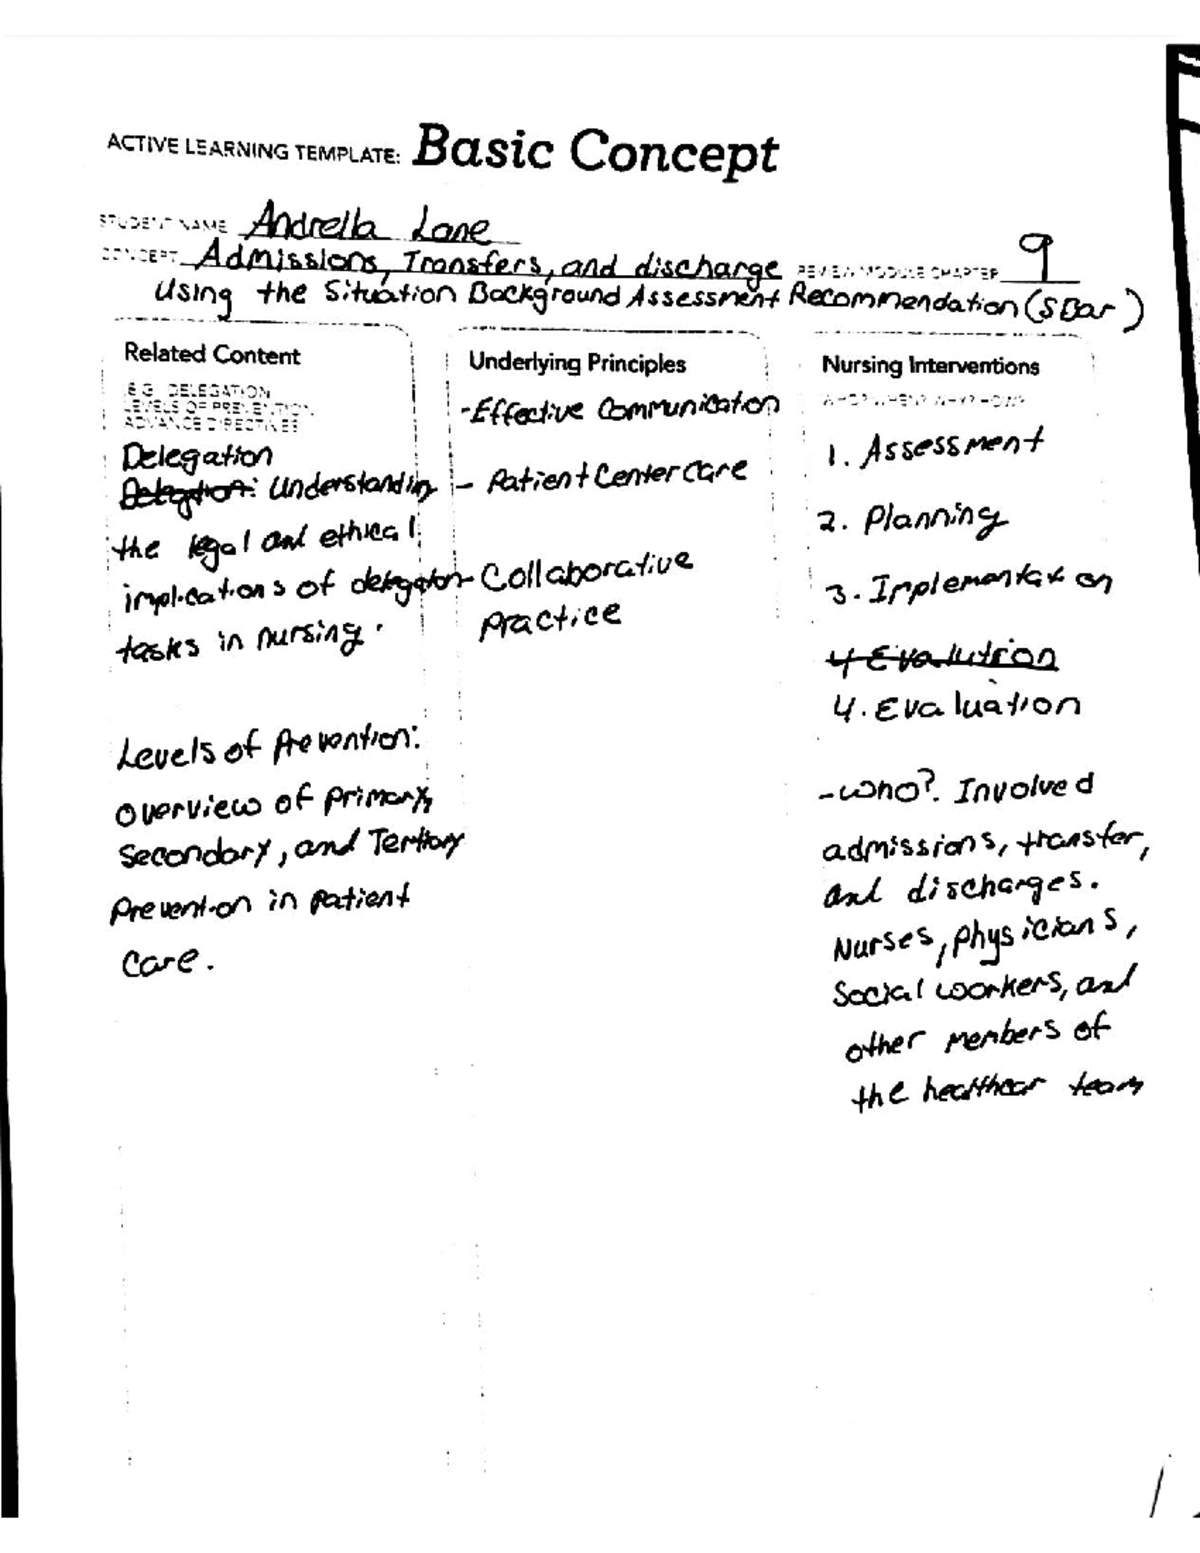 ACTIVE LEARNING TEMPLATE: Basic Concept
STUDENT NAME Andrella Lane
CONCEPT Admissions, Transfers, and discharge REVIEW MODULE CHAPTER 9
Using the Situation Background Assessment Recommendation (SBar)
Related Content
E.G. DELEGATION,
LEVELS OF PREVENTION,
ADVANCE DIRECTIVES
Delegation
Delegation: Understanding
the legal and ethical
implications of delegation
tasks in nursing.
Levels of Prevention:
overview of primary,
Secondary, and Tertiary
Prevention in patient
Care.
Underlying Principles
-Effective Communication
- Patient Center care
- Collaborative
Practice
Nursing Interventions
WHO? WHEN? WHY? HOW?
1. Assessment
2. Planning
3. Implementation
4 Evalutrion
4. Evaluation
-who?. Involved
admissions, transfer,
and discharges.
Nurses, physicians,
Social workers, and
other members of
the healthcar team